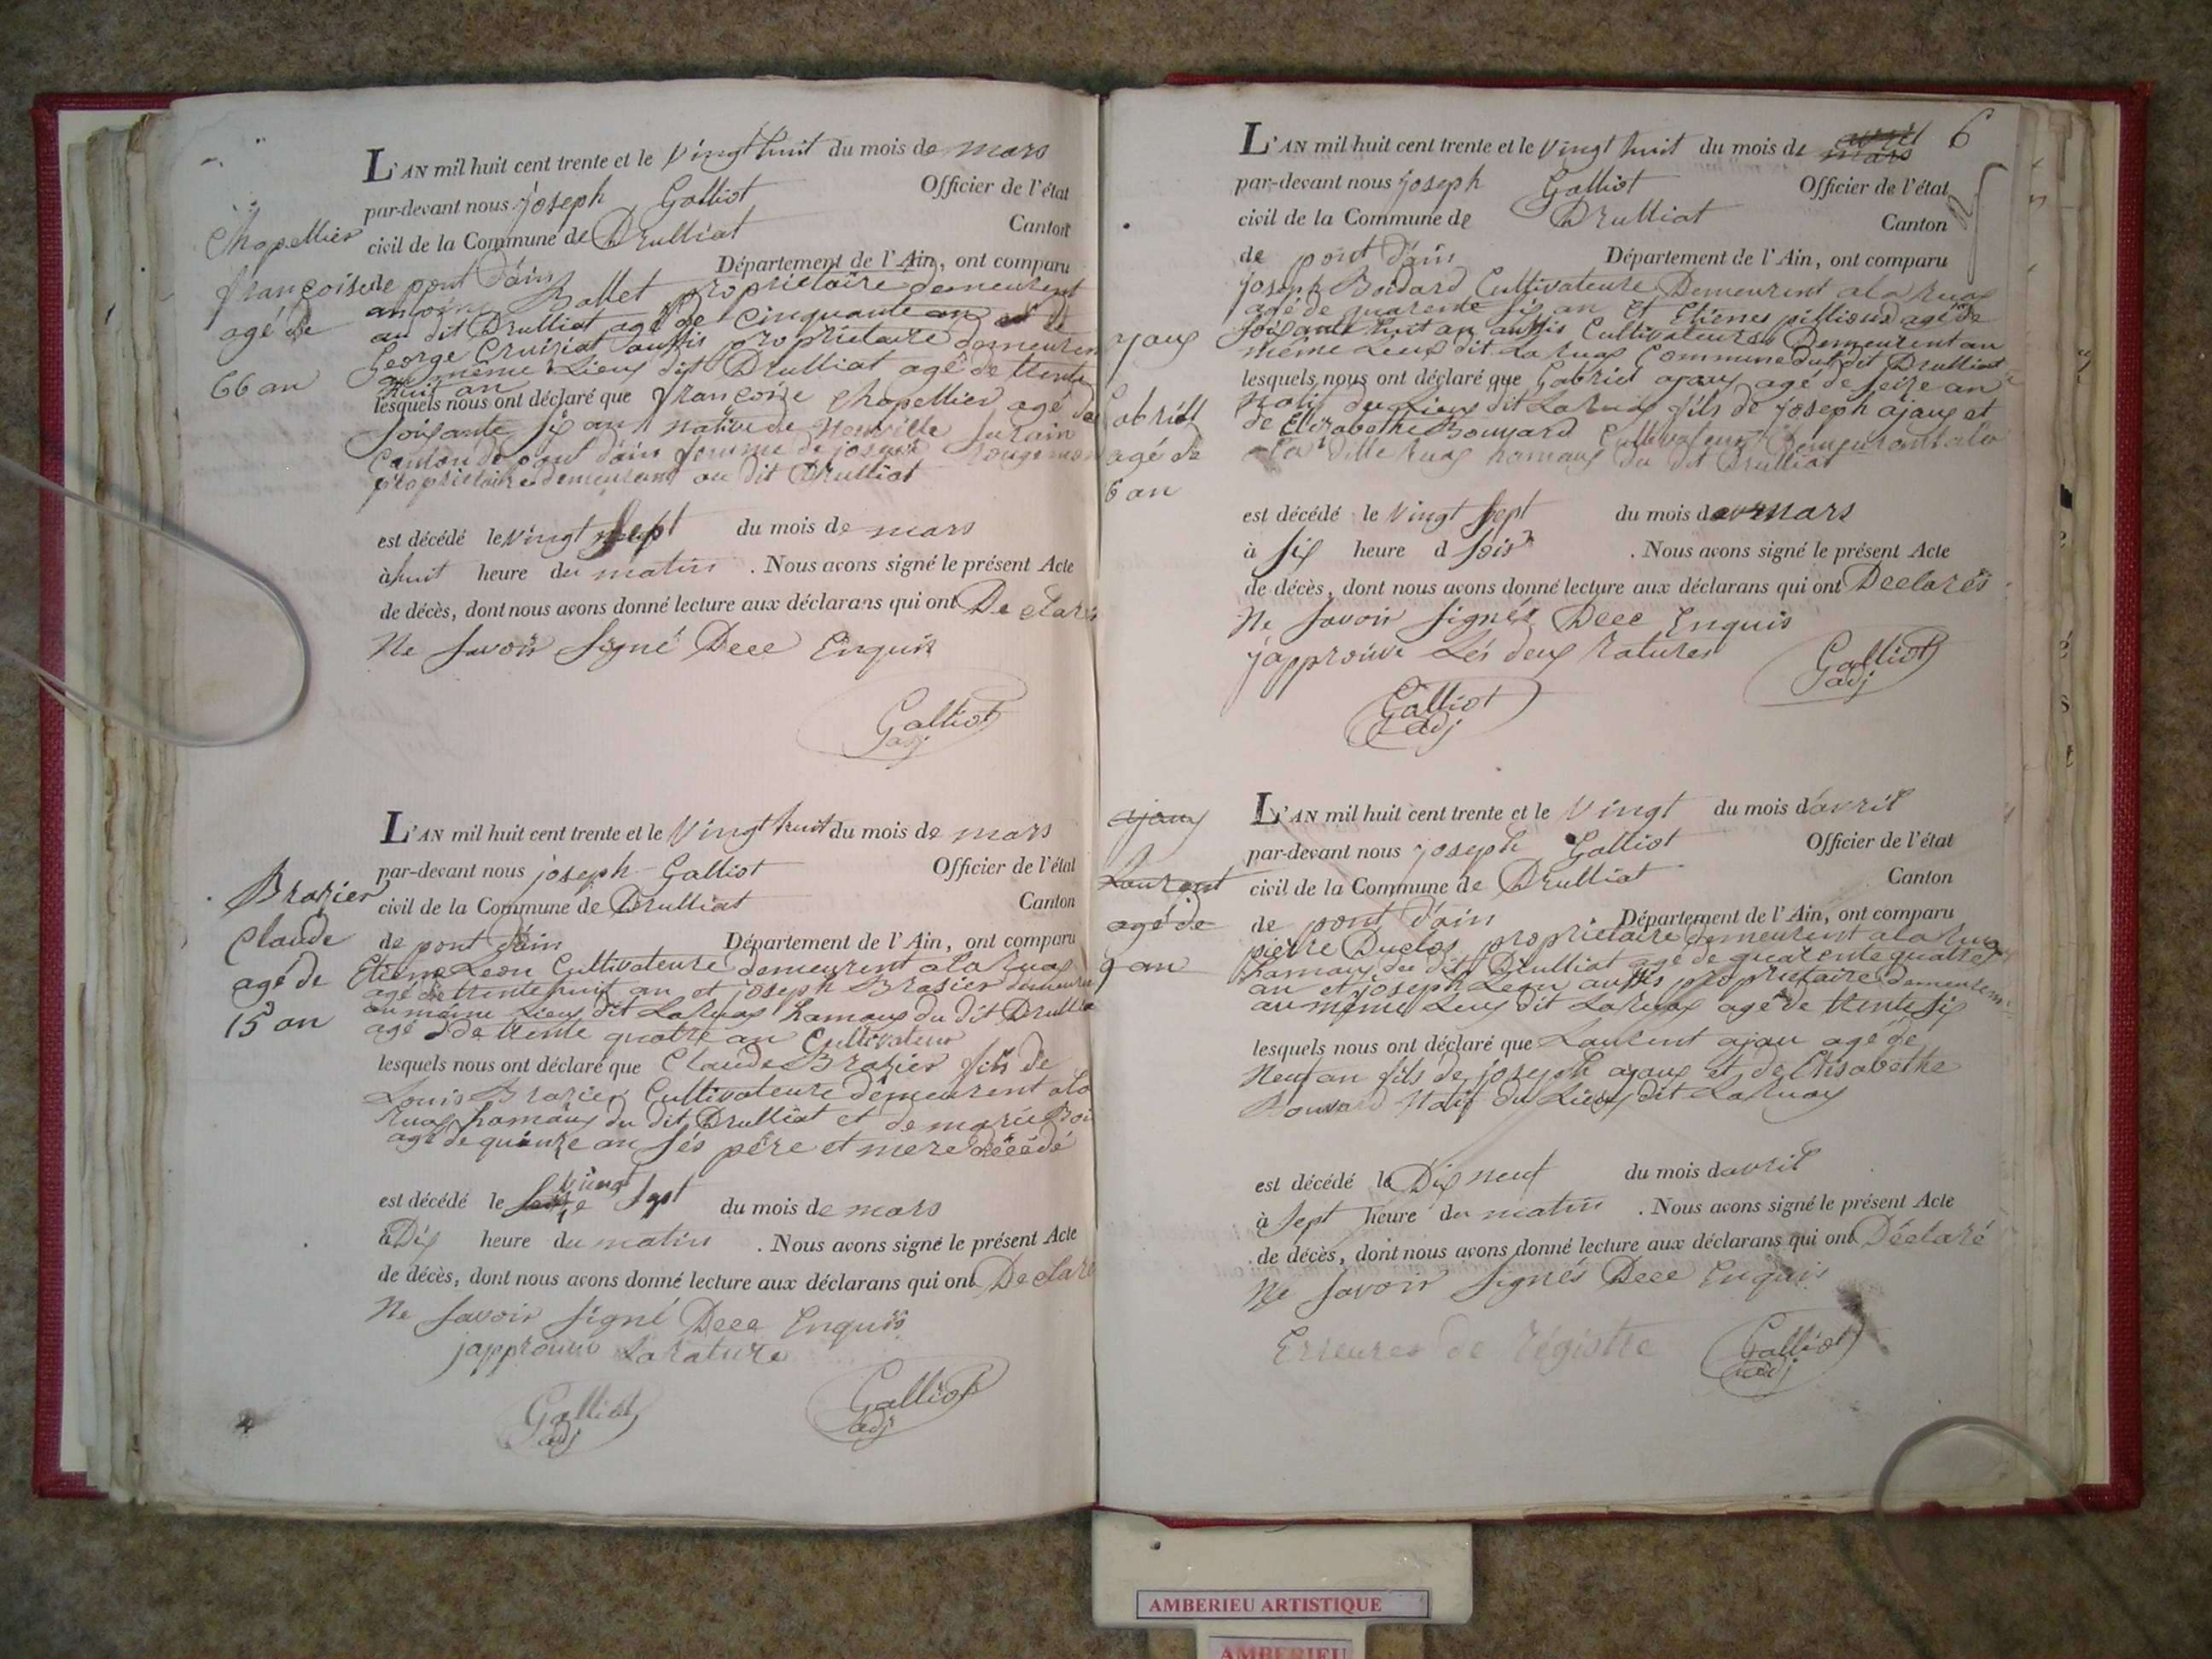 L'AN mil huit cent trente et le Vingt huit du mois de mars
par-devant nous joseph Galliot Officier de l'état
civil de la Commune de Drulliat Canton
de pont d'ain Département de l'Ain, ont comparu
Ballet proprietaire demeurent
au dit Drulliat agé de Cinquante an et de
George Cruiziat aussis proprietaire demeuren
au même Lieux dit Drulliat agé de trente
huit an
lesquels nous ont déclaré que françoise Chapellier agé de
soixante six an native de Neuville surain
Canton de pont d'ain femme de joseph
proprietaire demeurant au dit Drulliat
est décédé le Vingt sept du mois de mars
à huit heure du matin . Nous avons signé le présent Acte
de décès, dont nous avons donné lecture aux déclarans qui ont Declaré
Ne savoir signé Deee Enquis
Galliot
adj
Chapellier
françoise
agé de
66 an
L'AN mil huit cent trente et le Vingt huit du mois de mars
par-devant nous joseph Galliot Officier de l'état
civil de la Commune de Drulliat Canton
de pont d'ain Département de l'Ain, ont comparu
Etiene Leon Cultivateure demeurent a la ruax
agé de trente huit an et joseph Brasier demeure
au même Lieux dit La Ruax hamaux du dit Drullia
agé de trente quatre an Cultivateur
lesquels nous ont déclaré que Claude Brazier fils de
Louis Brazier Cultivateure demeurent ala
ruax hamaux du dit Drulliat et de marie
agé de quinze an sés père et mere décédé
Vingt
est décédé le sept du mois de mars
à Dix heure du matin . Nous avons signé le présent Acte
de décès, dont nous avons donné lecture aux déclarans qui ont Declaré
Ne savoir signé Deee Enquis
japprouve La rature
Galliot
adj
Galliot
adj
Brazier
Claude
agé de
15 an
6
L'AN mil huit cent trente et le Vingt huit du mois de avril mars
par-devant nous joseph Galliot Officier de l'état
civil de la Commune de Drulliat Canton
de pont d'ain Département de l'Ain, ont comparu
joseph Cultivateure Demeurent a la ruax
agé de quarente six an et Etienes agé de
soixante huit an aussis Cultivateure Demeurent au
même Lieux dit La ruax Commune du dit Drulliat
lesquels nous ont déclaré que Gabriel ajaux agé de seize an
natif du Lieux dit La ruax fils de joseph ajaux et
de Elizabethe Bouvard Cultivateur Demeurant ala
La ditte ruax hamaux du dit Drulliat
est décédé le Vingt sept du mois de mars
à six heure d soir . Nous avons signé le présent Acte
de décès, dont nous avons donné lecture aux déclarans qui ont Declarés
Ne savoir signés Deee Enquis
japprouve Lés deux ratures
Galliot
adj
Galliot
adj
yaux
Gabriel
agé de
6 an
L'AN mil huit cent trente et le Vingt du mois d'avril
par-devant nous joseph Galliot Officier de l'état
civil de la Commune de Drulliat Canton
de pont d'ain Département de l'Ain, ont comparu
pierre Duclos proprietaire demeurent a la ruax
hamaux du dit Drulliat agé de quarente quatre
an et joseph Leon aussis proprietaire demeurem
au même Lieux dit La ruax agé de trente six
lesquels nous ont déclaré que Laurent ajau agé de
Neuf an fils de joseph ajaux et de Elisabethe
Bouvard Natif du Lieux dit La Ruax
est décédé le Dix neuf du mois d avril
à sept heure du matin . Nous avons signé le présent Acte
de décès, dont nous avons donné lecture aux déclarans qui ont Déclaré
Ne savoir signés Deee Enquis
Erreures de régistre
Galliot
adj
ajaux
Laurent
agé de
9 an
AMBERIEU ARTISTIQUE
AMBERIEU